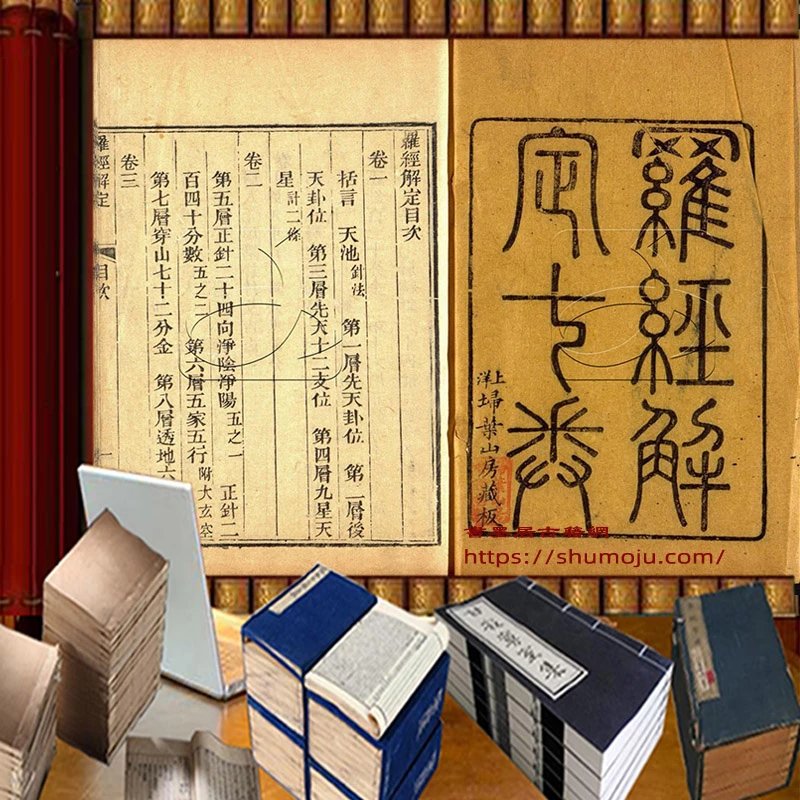 羅經解
定七卷
上洋埽葉山房藏板
羅經解定目次
卷一
括言 天池針法 第一層先天卦位 第二層後
天卦位 第三層先天十二支位 第四層九星天
星計二條
卷二
第五層正針二十四向淨陰淨陽五之一 正針二
百四十分數五之二 第六層五家五行附大玄空
第七層穿山七十二分金 第八層透地六
卷三
羅經解定 目次 一
書墨居古籍網
https://shumoju.com/